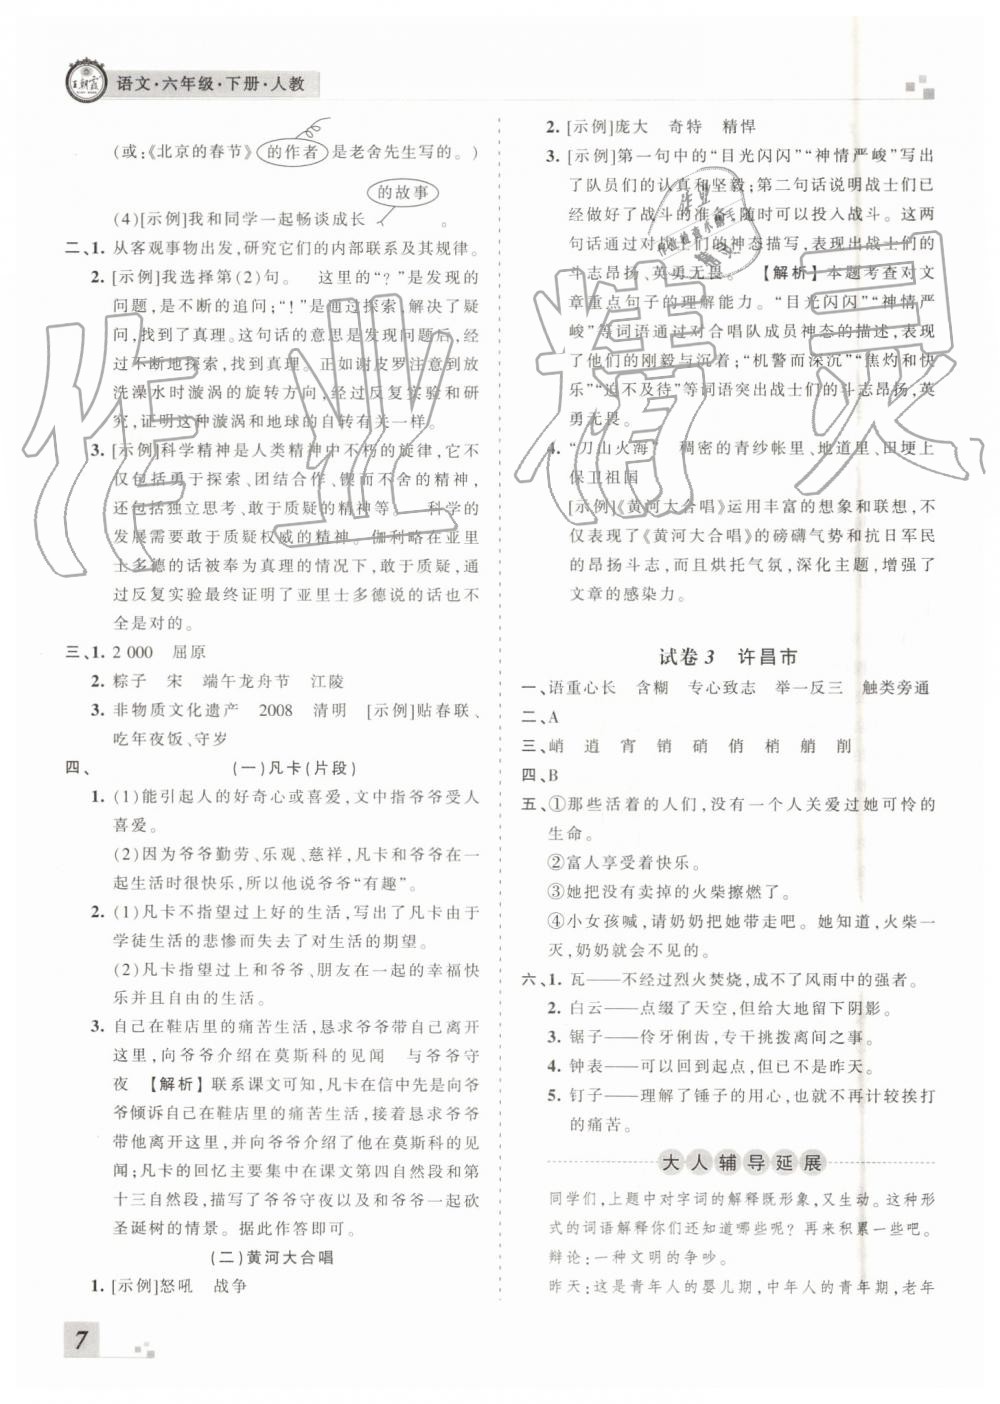 王朝霞
语文·六年级·下册·人教
(或:《北京的春节》的作者是老舍先生写的。)
的故事
(4)[示例]我和同学一起畅谈成长 。
二、1. 从客观事物出发,研究它们的内部联系及其规律。
2. [示例]我选择第(2)句。 这里的“?”是发现的
问题,是不断的追问;“!”是通过探索,解决了疑
问,找到了真理。这句话的意思是发现问题后,经
过不断地探索,找到真理。正如谢皮罗注意到放
洗澡水时漩涡的旋转方向,经过反复实验和研
究,证明这种漩涡和地球的自转有关一样。
3. [示例]科学精神是人类精神中不朽的旋律,它不
仅包括勇于探索、团结合作、锲而不舍的精神,
还包括独立思考、敢于质疑的精神等。 科学的
发展需要敢于质疑权威的精神。伽利略在亚里
士多德的话被奉为真理的情况下,敢于质疑,通
过反复实验最终证明了亚里士多德说的话也不
全是对的。
三、1. 2 000 屈原
2. 粽子 宋 端午龙舟节 江陵
3. 非物质文化遗产 2008 清明 [示例]贴春联、
吃年夜饭、守岁
四、 (一)凡卡(片段)
1. (1)能引起人的好奇心或喜爱,文中指爷爷受人
喜爱。
(2)因为爷爷勤劳、乐观、慈祥,凡卡和爷爷在一
起生活时很快乐,所以他说爷爷“有趣”。
2. (1)凡卡不指望过上好的生活,写出了凡卡由于
学徒生活的悲惨而失去了对生活的期望。
(2)凡卡指望过上和爷爷、朋友在一起的幸福快
乐并且自由的生活。
3. 自己在鞋店里的痛苦生活,恳求爷爷带自己离开
这里,向爷爷介绍在莫斯科的见闻 与爷爷守
夜 【解析】联系课文可知,凡卡在信中先是向爷
爷倾诉自己在鞋店里的痛苦生活,接着恳求爷爷
带他离开这里,并向爷爷介绍了他在莫斯科的见
闻;凡卡的回忆主要集中在课文第四自然段和第
十三自然段,描写了爷爷守夜以及和爷爷一起砍
圣诞树的情景。据此作答即可。
(二)黄河大合唱
1. [示例]怒吼 战争
2. [示例]庞大 奇特 精悍
3. [示例]第一句中的“目光闪闪”“神情严峻”写出
了队员们的认真和坚毅;第二句话说明战士们已
经做好了战斗的准备,随时可以投入战斗。这两
句话通过对战士们的神态描写,表现出战士们的
斗志昂扬、英勇无畏。 【解析】本题考查对文
章重点句子的理解能力。“目光闪闪”“神情严
峻”等词语通过对合唱队成员神态的描述,表现
了他们的刚毅与沉着;“机警而深沉”“焦灼和快
乐”“迫不及待”等词语突出战士们的斗志昂扬,英
勇无畏。
4. “刀山火海” 稠密的青纱帐里、地道里、围埂上
保卫祖国
[示例]《黄河大合唱》运用丰富的想象和联想,不
仅表现了《黄河大合唱》的磅礴气势和抗日军民
的昂扬斗志,而且烘托气氛,深化主题,增强了
文章的感染力。
试卷 3 许昌市
一、语重心长 含糊 专心致志 举一反三 触类旁通
二、A
三、峭 逍 宵 销 硝 俏 梢 艄 削
四、B
五、①那些活着的人们,没有一个人关爱过她可怜的
生命。
②富人享受着快乐。
③她把没有卖掉的火柴擦燃了。
④小女孩喊,请奶奶把她带走吧。她知道,火柴一
灭,奶奶就会不见的。
六、1. 瓦——不经过烈火焚烧,成不了风雨中的强者。
2. 白云——点缀了天空,但给大地留下阴影。
3. 锯子——伶牙俐齿,专干挑拨离间之事。
4. 钟表——可以回到起点,但已不是昨天。
5. 钉子——理解了锤子的用心,也就不再计较挨打
的痛苦。
大人辅导延展
同学们,上题中对字词的解释既形象,又生动。这种形
式的词语解释你们还知道哪些呢?再来积累一些吧。
辩论:一种文明的争吵。
昨天:这是青年人的婴儿期,中年人的青年期,老年
7
作业精灵